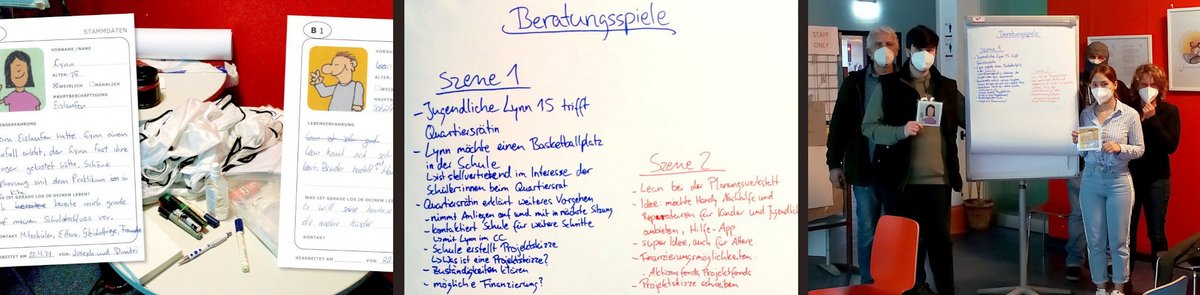 STAMMDATEN
VORNAME / NAME
Lynn
ALTER: 15
WEIBLICH MÄNNLICH
HAUPTBESCHÄFTIGUNG
Eislaufen
LEBENSERFAHRUNG
Eislaufen hatte Lynn einen
der Lynn fast ihre
gekostet hätte, Schöne
mit dem Praktikum
Kita
IST GERADE LOS IN DEINEM LEBEN?
mich gerade
auf meinen Schulabschluss vor.
KONTAKT Mitschüler, Eltern, Gleichaltrige, Freunde
BEARBEITET AM 22.4.21 VON: Joseph und Dimitri
B 1
VORNAME
Leon
ALTER:
WEIBLICH
HAUPTBESCHÄFTIGUNG
LEBENSERFAHRUNG
Leon
WAS IST GERADE LOS
Er will
KONTAKT
BEARBEITET AM 22.
Beratungsspiele
Szene 1
- Jugendliche Lynn 15 trifft
Quartiersrätin
- Lynn möchte einen Basketballplatz
in der Schule
↳ist stellvertretend im Interesse der
Schüler:innen beim Quartiersrat
- Quartiersrätin erklärt weiteres Vorgehen
- nimmt Anliegen auf und mit in nächste Sitzung
- kontaktiert Schule für weitere Schritte
↳ mit Lynn im CC
- Schule erstellt Projektskizze
↳ Was ist eine Projektskizze?
- Zuständigkeiten klären
- mögliche Finanzierung?
Szene 2
- Leon bei der Planungswerkstatt
- Idee: möchte Handy Nachhilfe und
Reparaturen für Kinder und Jugendliche
anbieten, Hilfe-App
- super Idee, auch für Ältere
- Finanzierungsmöglichkeiten:
- Aktionsfonds, Projektfonds
- Projektskizze schreiben
STAFF
ONLY
Beratungsspiele
Szene 1
Szene 2